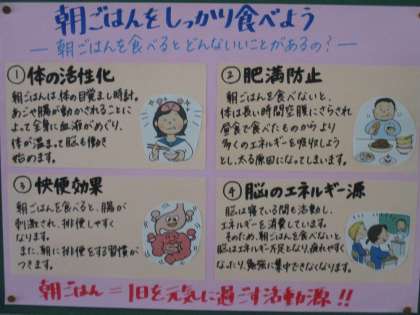 朝ごはんをしっかり食べよう
―朝ごはんを食べるとどんないいことがあるの?―
①体の活性化
朝ごはんは、体の目覚まし時計。
あごや腸が動かされることに
よって全身に血液がめぐり、
体が温まって脳も働き
始めます。
②肥満防止
朝ごはんを食べないと、
体は長い時間空腹にさらされ
昼食で食べたものからより
多くのエネルギーを吸収しよう
とし、太る原因になってしまいます。
③快便効果
朝ごはんを食べると、腸が
刺激され、排便しやすく
なります。
また、朝に排便をする習慣が
つきます。
④脳のエネルギー源
脳は寝ている間も活動し、
エネルギーを消費しています。
そのため、朝ごはんを食べないと
脳はエネルギー不足となり、疲れやすく
なったり、勉強に集中できなくなります。
朝ごはん=1日を元気に過ごす活動源!!